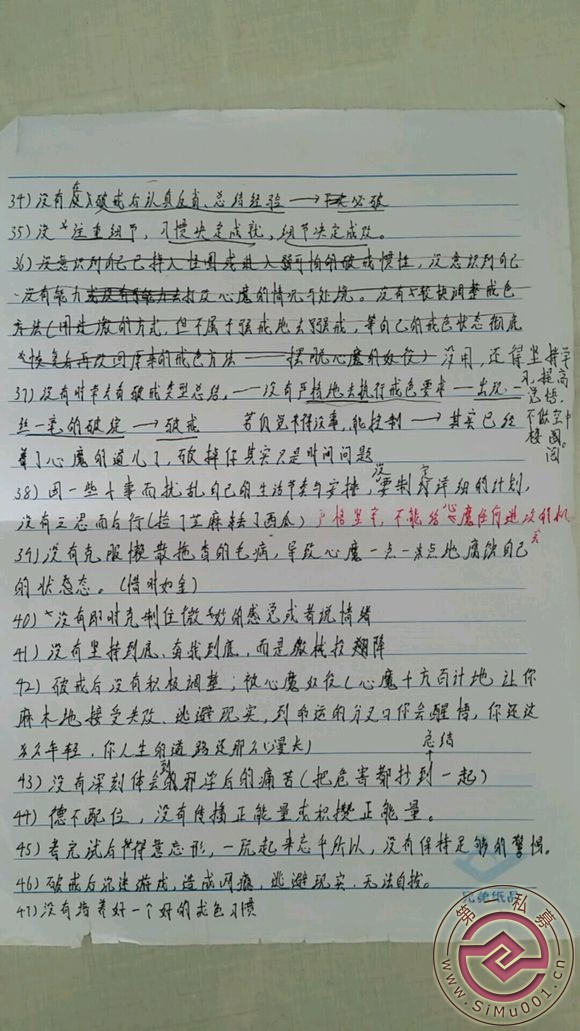 34）没有在破戒后认真反省、总结经验 → 必破
35）没注重细节，习惯决定成就，细节决定成败。
36）没意识到自己已掉入性困或进入强可怕的破戒惯性，没意识到自己
没有能力去救改心魔的情况与处境。没有积极调整戒色
方法（用过激的方式，但不属于强戒地去强戒，等自己的戒色状态彻底
恢复后再改回原来的戒色方法——摆脱心魔的奴役）没用，还得坚持学
习，提高
觉悟，
不做空中
楼阁。
37）没有时常去看破戒类型总结。——没有严格地去执行戒色要求——出现一
丝一毫的破绽→破戒 若自觉不得没事，能控制→其实已经
着了心魔的道儿了，破掉你其实只是时间问题
38）因一些小事而扰乱自己的生活节奏与安排，没要制定好详细的计划，
没有三思而后行（捡了芝麻丢了西瓜）严格坚守，不能给心魔任何进攻的机
会
39）没有克服懒散拖沓的毛病，导致心魔一点一点地腐蚀自己
的状态。（惜时如金）
40）没有即时克制住微妙的感觉或者说情绪
41）没有坚持到底、奋战到底，而是缴械投翔降
42）破戒后没有积极调整；被心魔奴役（心魔千方百计地让你
麻木地接受失败、逃避现实，到命运的分叉口你会醒悟，你还这
么年轻，你人生的道路还那么漫长）
43）没有深刻体会到邪淫后的痛苦（把危害都抄到一起）
总结
44）德不配位，没有传播正能量或积攒正能量。
45）考完试后得意忘形，一玩起来忘乎所以，没有保持足够的警惕。
46）破戒后沉迷游戏，造成网瘾，逃避现实，无法自拔。
47）没有培养好一个好的戒色习惯
兄弟纸品
第一私募
www.SiMu001.cn